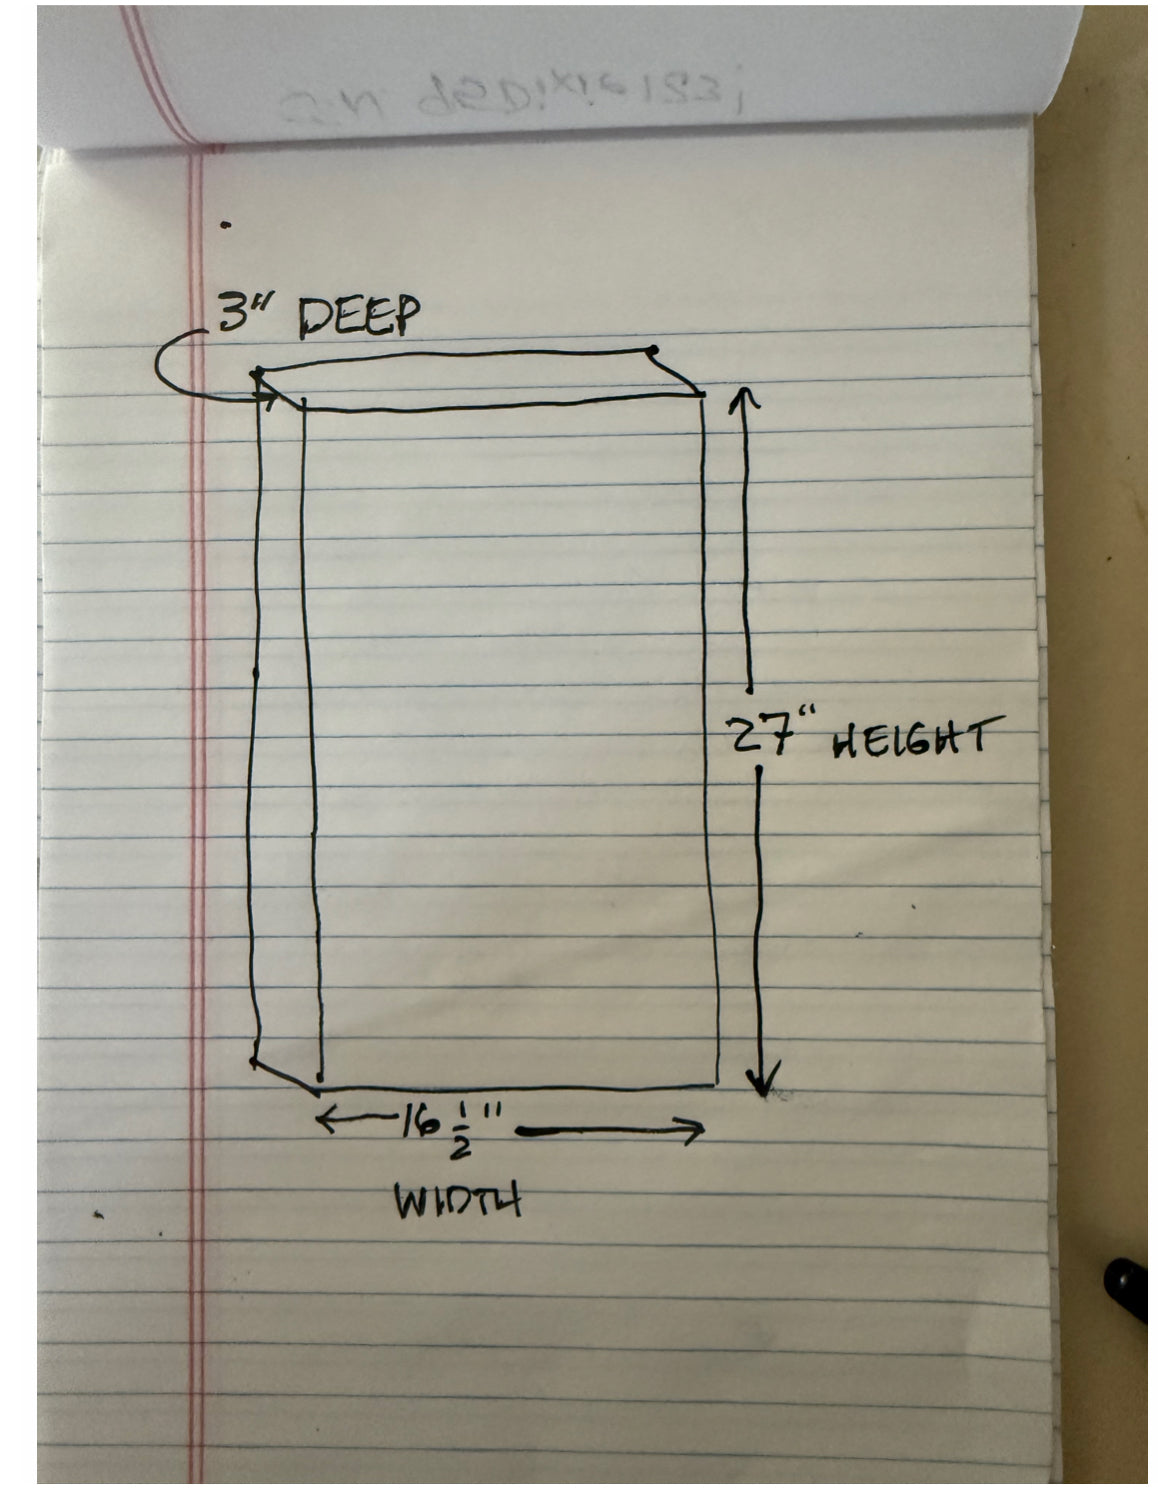 3" DEEP
27" HEIGHT
16 1/2"
WIDTH